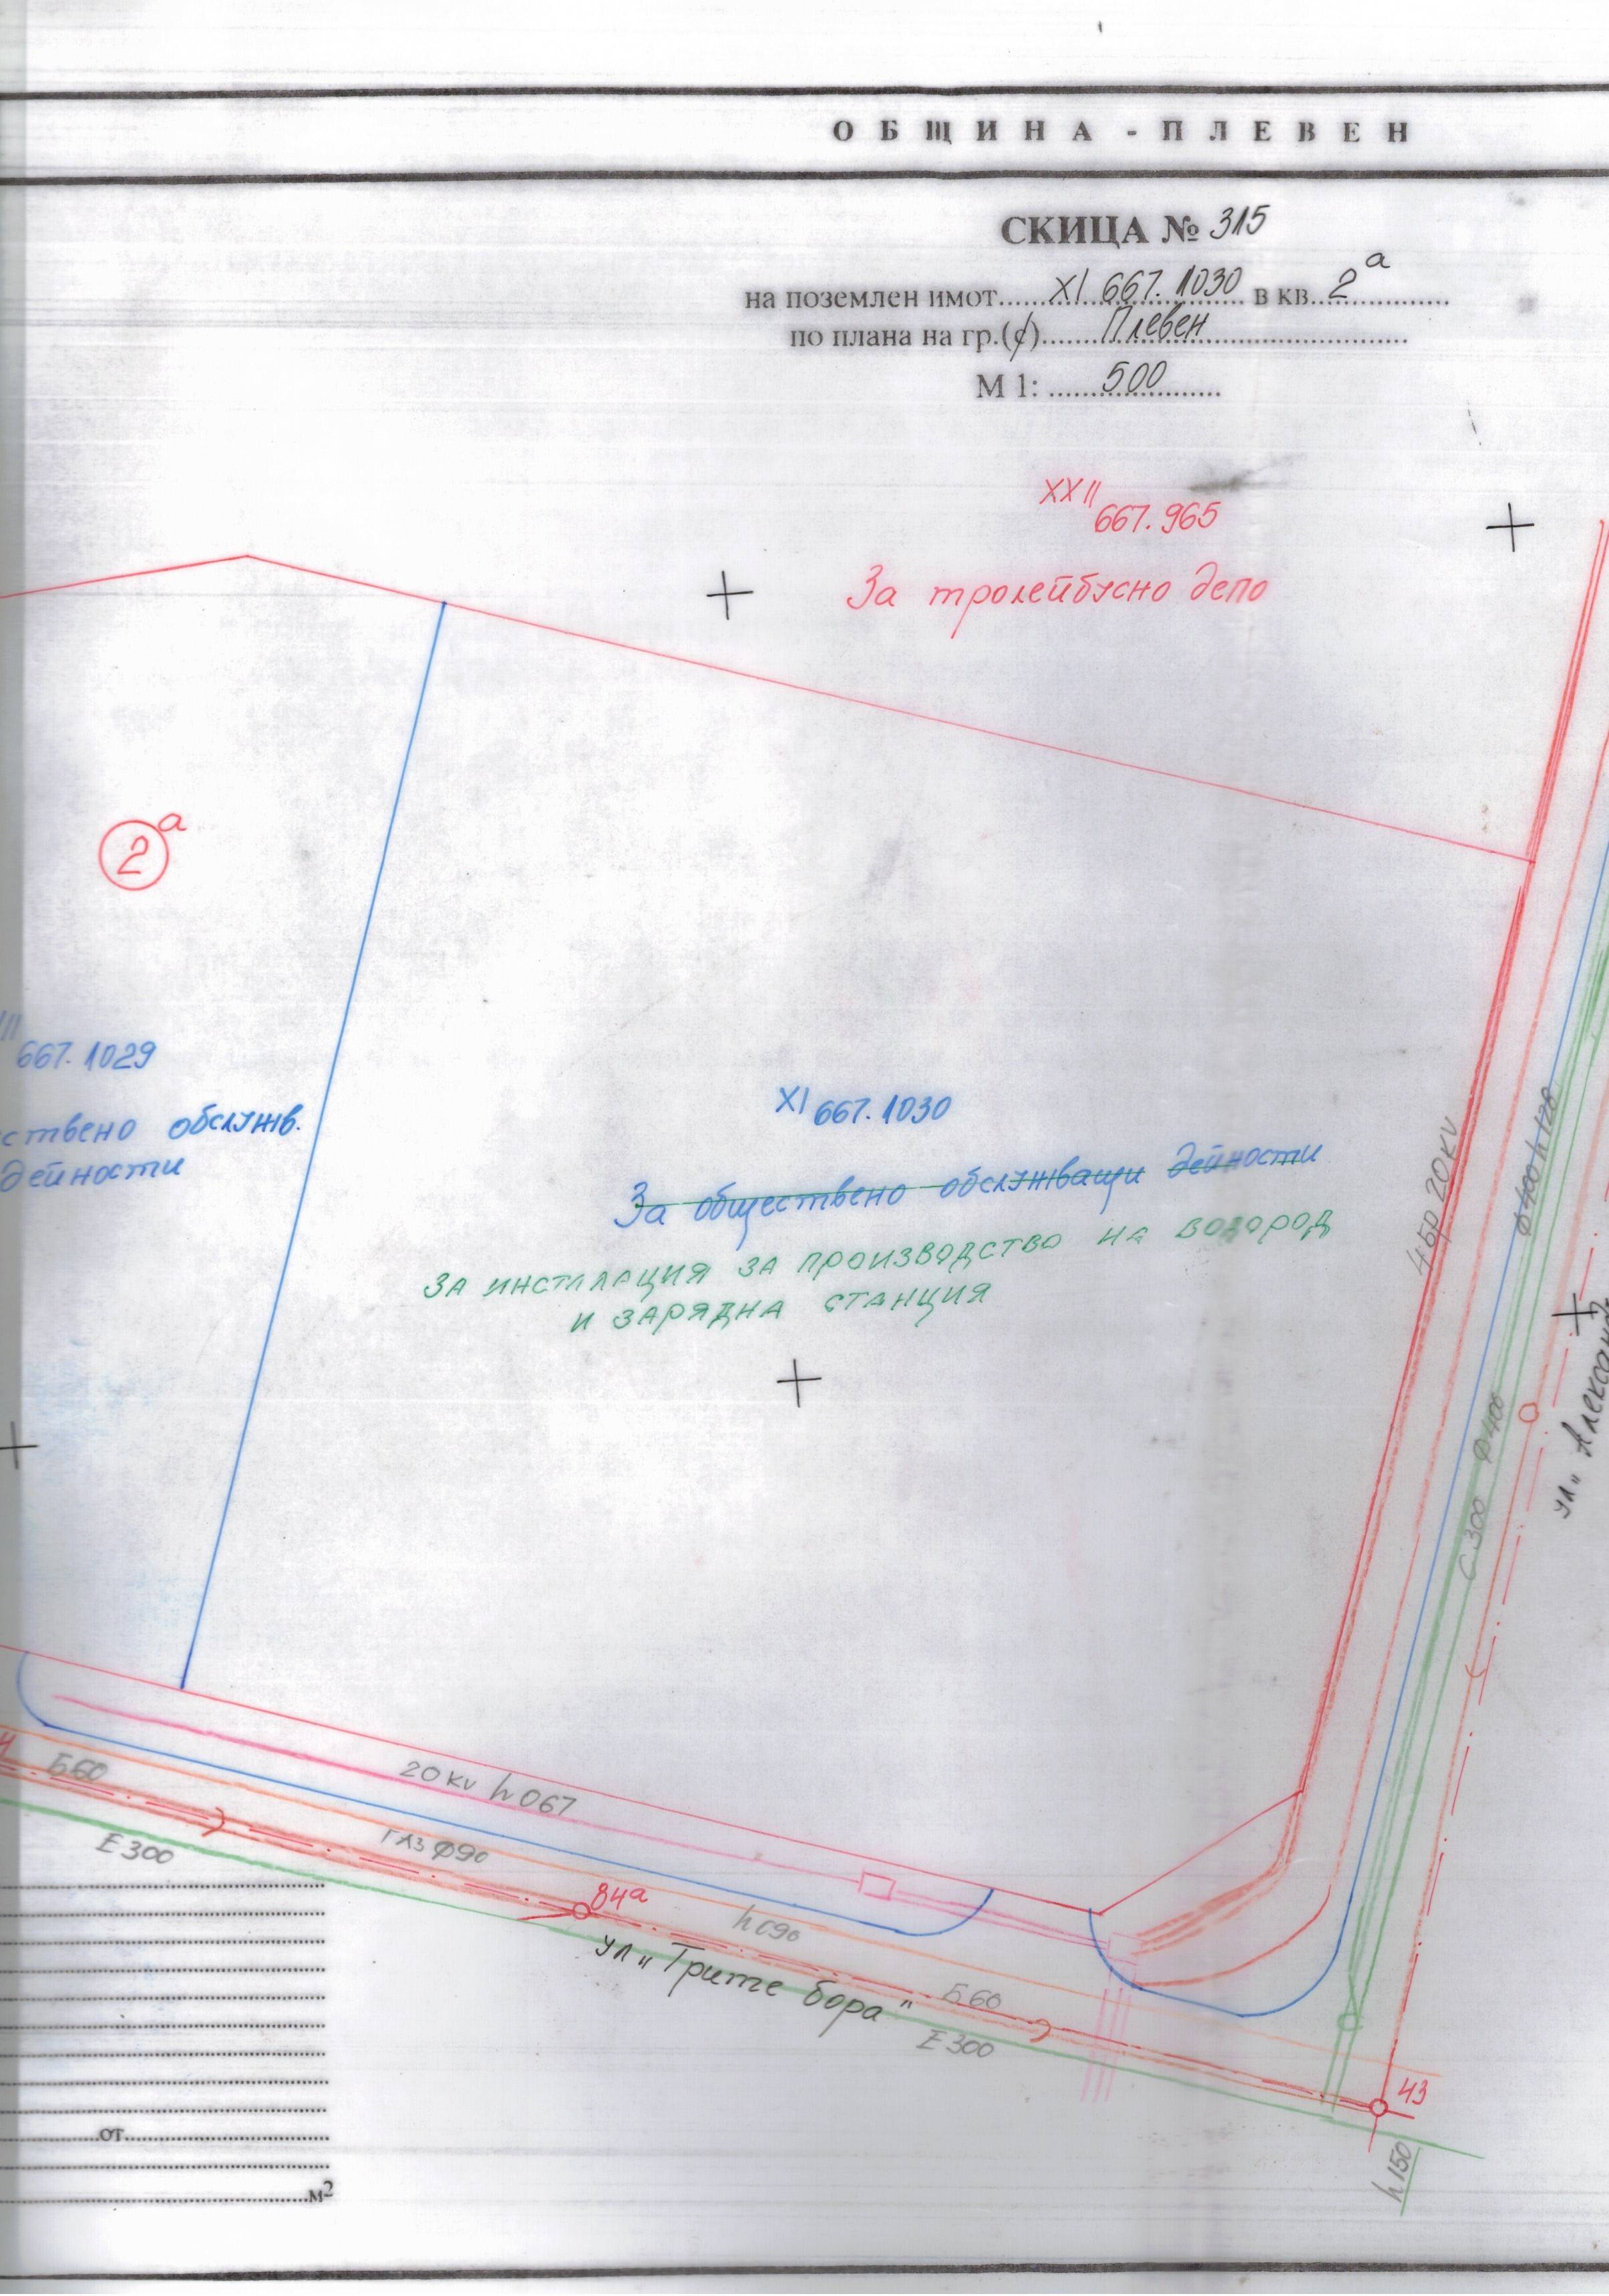 ОБЩИНА - ПЛЕВЕН
СКИЦА № 315
на поземлен имот......XI 667.1030 в кв...2а
по плана на гр.(с)......Плевен
М 1: ......500
XXII 667.965
За тролейбусно депо
2а
667.1029
ствено обслужв.
дейности
XI 667.1030
За обществено обслужващи дейности
ЗА ИНСТАЛАЦИЯ ЗА ПРОИЗВОДСТВО НА ВОДОРОД
И ЗАРЯДНА СТАНЦИЯ
4бр 20KV
Ф400 h 178
Ф400
С 300
ул „
20 KV h 067
Б60
Е 300
ГАЗ Ф90
84а
h 090
ул „Трите бора"
Б60
Е 300
43
h 150
от
м2